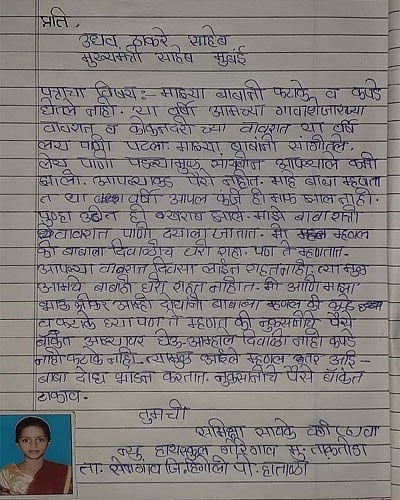 प्रति,
उधव ठाकरे साहेब
मुख्यमंत्री साहेब मुंबई
पत्राचा विषय:- माझ्या बाबांनी फटाके व कपडे
घेतले नाही. या वर्षी आमच्या गावाशेजारच्या
वावरात व च्या वावरात या वर्षी
लय पाणी पडला माझ्या बाबांनी सांगीतले.
लय पाणी पडल्यामुळ सोयाबीन आपल्याले कमी
झाली. आपल्याकड पैसे नाहीत. माहे बाबा म्हणता
त या वर्षी आपल कर्ज ही माफ झाल नाही.
पुन्हा उडीत ही खराब झाले. माझे बाबा राती
वावरात पाणी दयाला जातात. मी म्हणल
की बाबाला दिवाळीच घरी राहा. पण ते म्हणतात.
आपल्या वावरात दिवसा लाईन राहत नाही त्यामुळ
आमचे बाबाही घरी राहत नाहीत. मी आणि माझा
भाऊ आम्ही दोघांनी बाबाला म्हणल की कपडे
व फटाके घ्या पण ते म्हणत की नुकसानीचे पैसे
बँकेत आल्यावर घेऊ. आम्हाले दिवाळी नाही कपडे
नाही फटाके नाही. त्यामुळ आईले म्हणल तर आई-
बाबा दोघ भांडन करतात. नुकसानीचे पैसे बँकेत
टाकाव.
तुमची
समिक्षा सावके वर्ग (6) वा
न्यु हायस्कुल गोरेगाव मु. ताकतोडा
ता. सेनगाव जि. हिंगोली पो. हाताळा